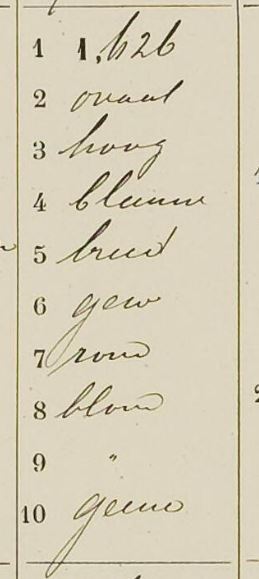 1 1,626
2 ovaal
3 hoog
4 blauw
5 breed
6 gew
7 rond
8 blond
9 "
10 geene